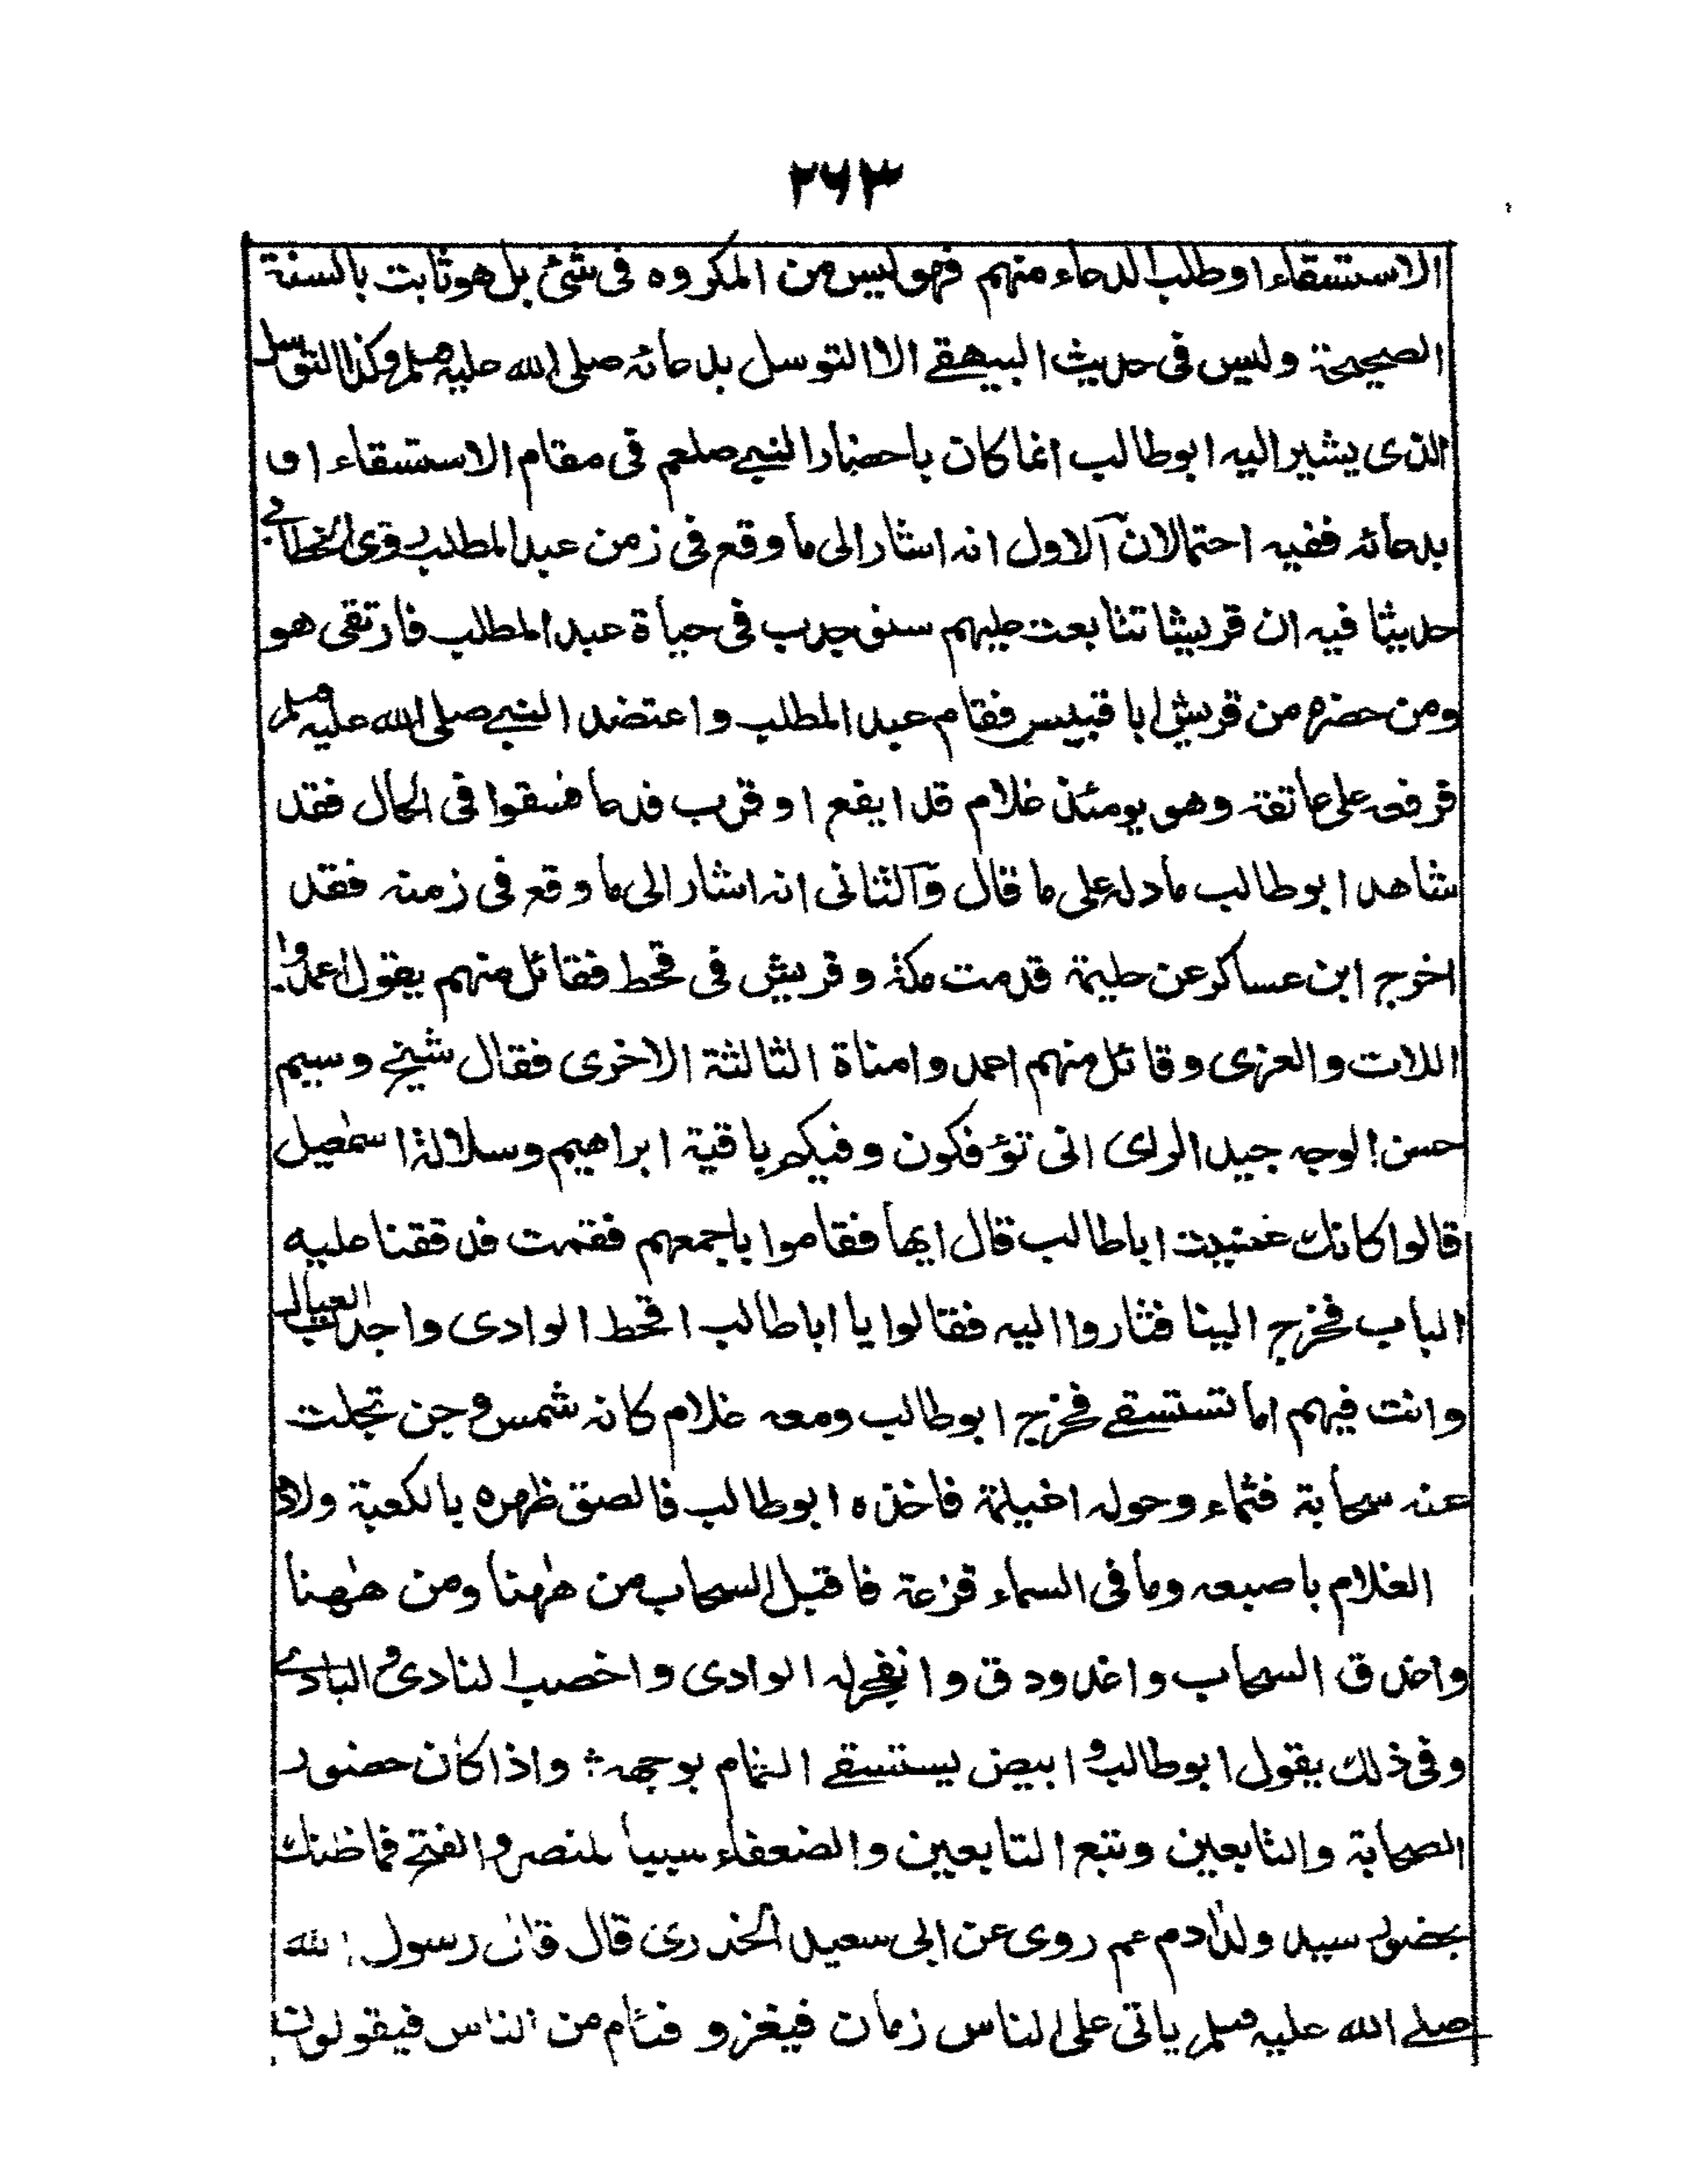 ٢٦٣
الاستسقاء او طلب الدعاء منهم فهو ليس من المكروه فى شئ بل هو ثابت بالسنة
الصحيحة وليس فى حديث البيهقے الا التوسل بدعائه صلى الله عليه وسلم وكذا التوسل
الذى يشير اليه ابو طالب انما كان باحضار النبے صلعم فى مقام الاستسقاء او
بدعائه ففيه احتمالان الاول انه اشار الى ما وقع فى زمن عبد المطلب روى الخطابے
حديثا فيه ان قريشا تتابعت عليهم سنو جدب فى حياة عبد المطلب فارتقى هو
ومن حضره من قريش ابا قبيس فقام عبد المطلب واعتضد النبے صلى الله عليه وسلم
فرفعه على عاتقه وهو يومئذ غلام قد ايفع او قرب فدعا فسقوا فى الحال فقد
شاهد ابو طالب ما دله على ما قال والثانى انه اشار الى ما وقع فى زمنه فقد
اخرج ابن عساكر عن حليمة قدمت مكة و قريش فى قحط فقائل منهم يقول اعمدوا
اللات والعزى وقائل منهم اعمدوا مناة الثالثة الاخرى فقال شيخ وسيم
حسن الوجه جيد الراى انى تؤفكون وفيكم باقية ابراهيم وسلالة اسمٰعيل
قالوا كانك عنيت ابا طالب قال ايها فقاموا باجمعهم فقمت فدققنا عليه
الباب فخرج الينا فثاروا اليه فقالوا يا ابا طالب اقحط الوادى واجدب العيال
وانت فيهم اما تستسقے فخرج ابو طالب ومعه غلام كانه شمس دجن تجلت
عنه سحابة قتماء وحوله اغيلمة فاخذه ابو طالب فالصق ظهره بالكعبة ولاذ
الغلام باصبعه وما فى السماء قزعة فاقبل السحاب من هٰهنا ومن هٰهنا
واغدق السحاب واغدودق وانفجر له الوادى واخصب النادى والبادے
وفى ذلك يقول ابو طالب و ابيض يستسقے الغمام بوجهه ؞ واذا كان حضور
الصحابة والتابعين وتبع التابعين والضعفاء سببا للنصر والفتح فما ظنك
بحضور سيد ولد اٰدم عم روى عن ابى سعيد الخدرى قال قال رسول الله
صلے الله عليه وسلم ياتى على الناس زمان فيغزو فئام من الناس فيقولون